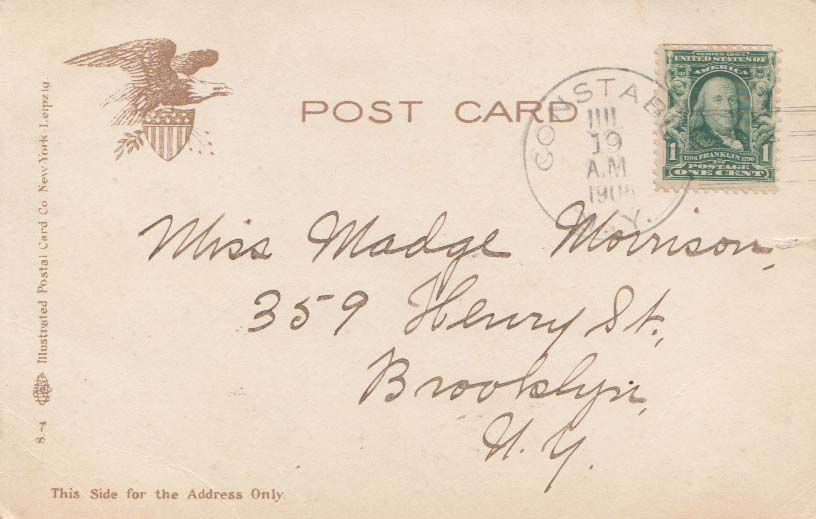 POST CARD
SERIES 1902
UNITED STATES OF
AMERICA
1 1706 FRANKLIN 1790 1
POSTAGE
ONE CENT
19
A.M
N.Y.
Miss Madge Morrison,
359 Henry St.,
Brooklyn,
N.Y.
8.-4 Illustrated Postal Card Co. New York-Leipzig.
This Side for the Address Only.